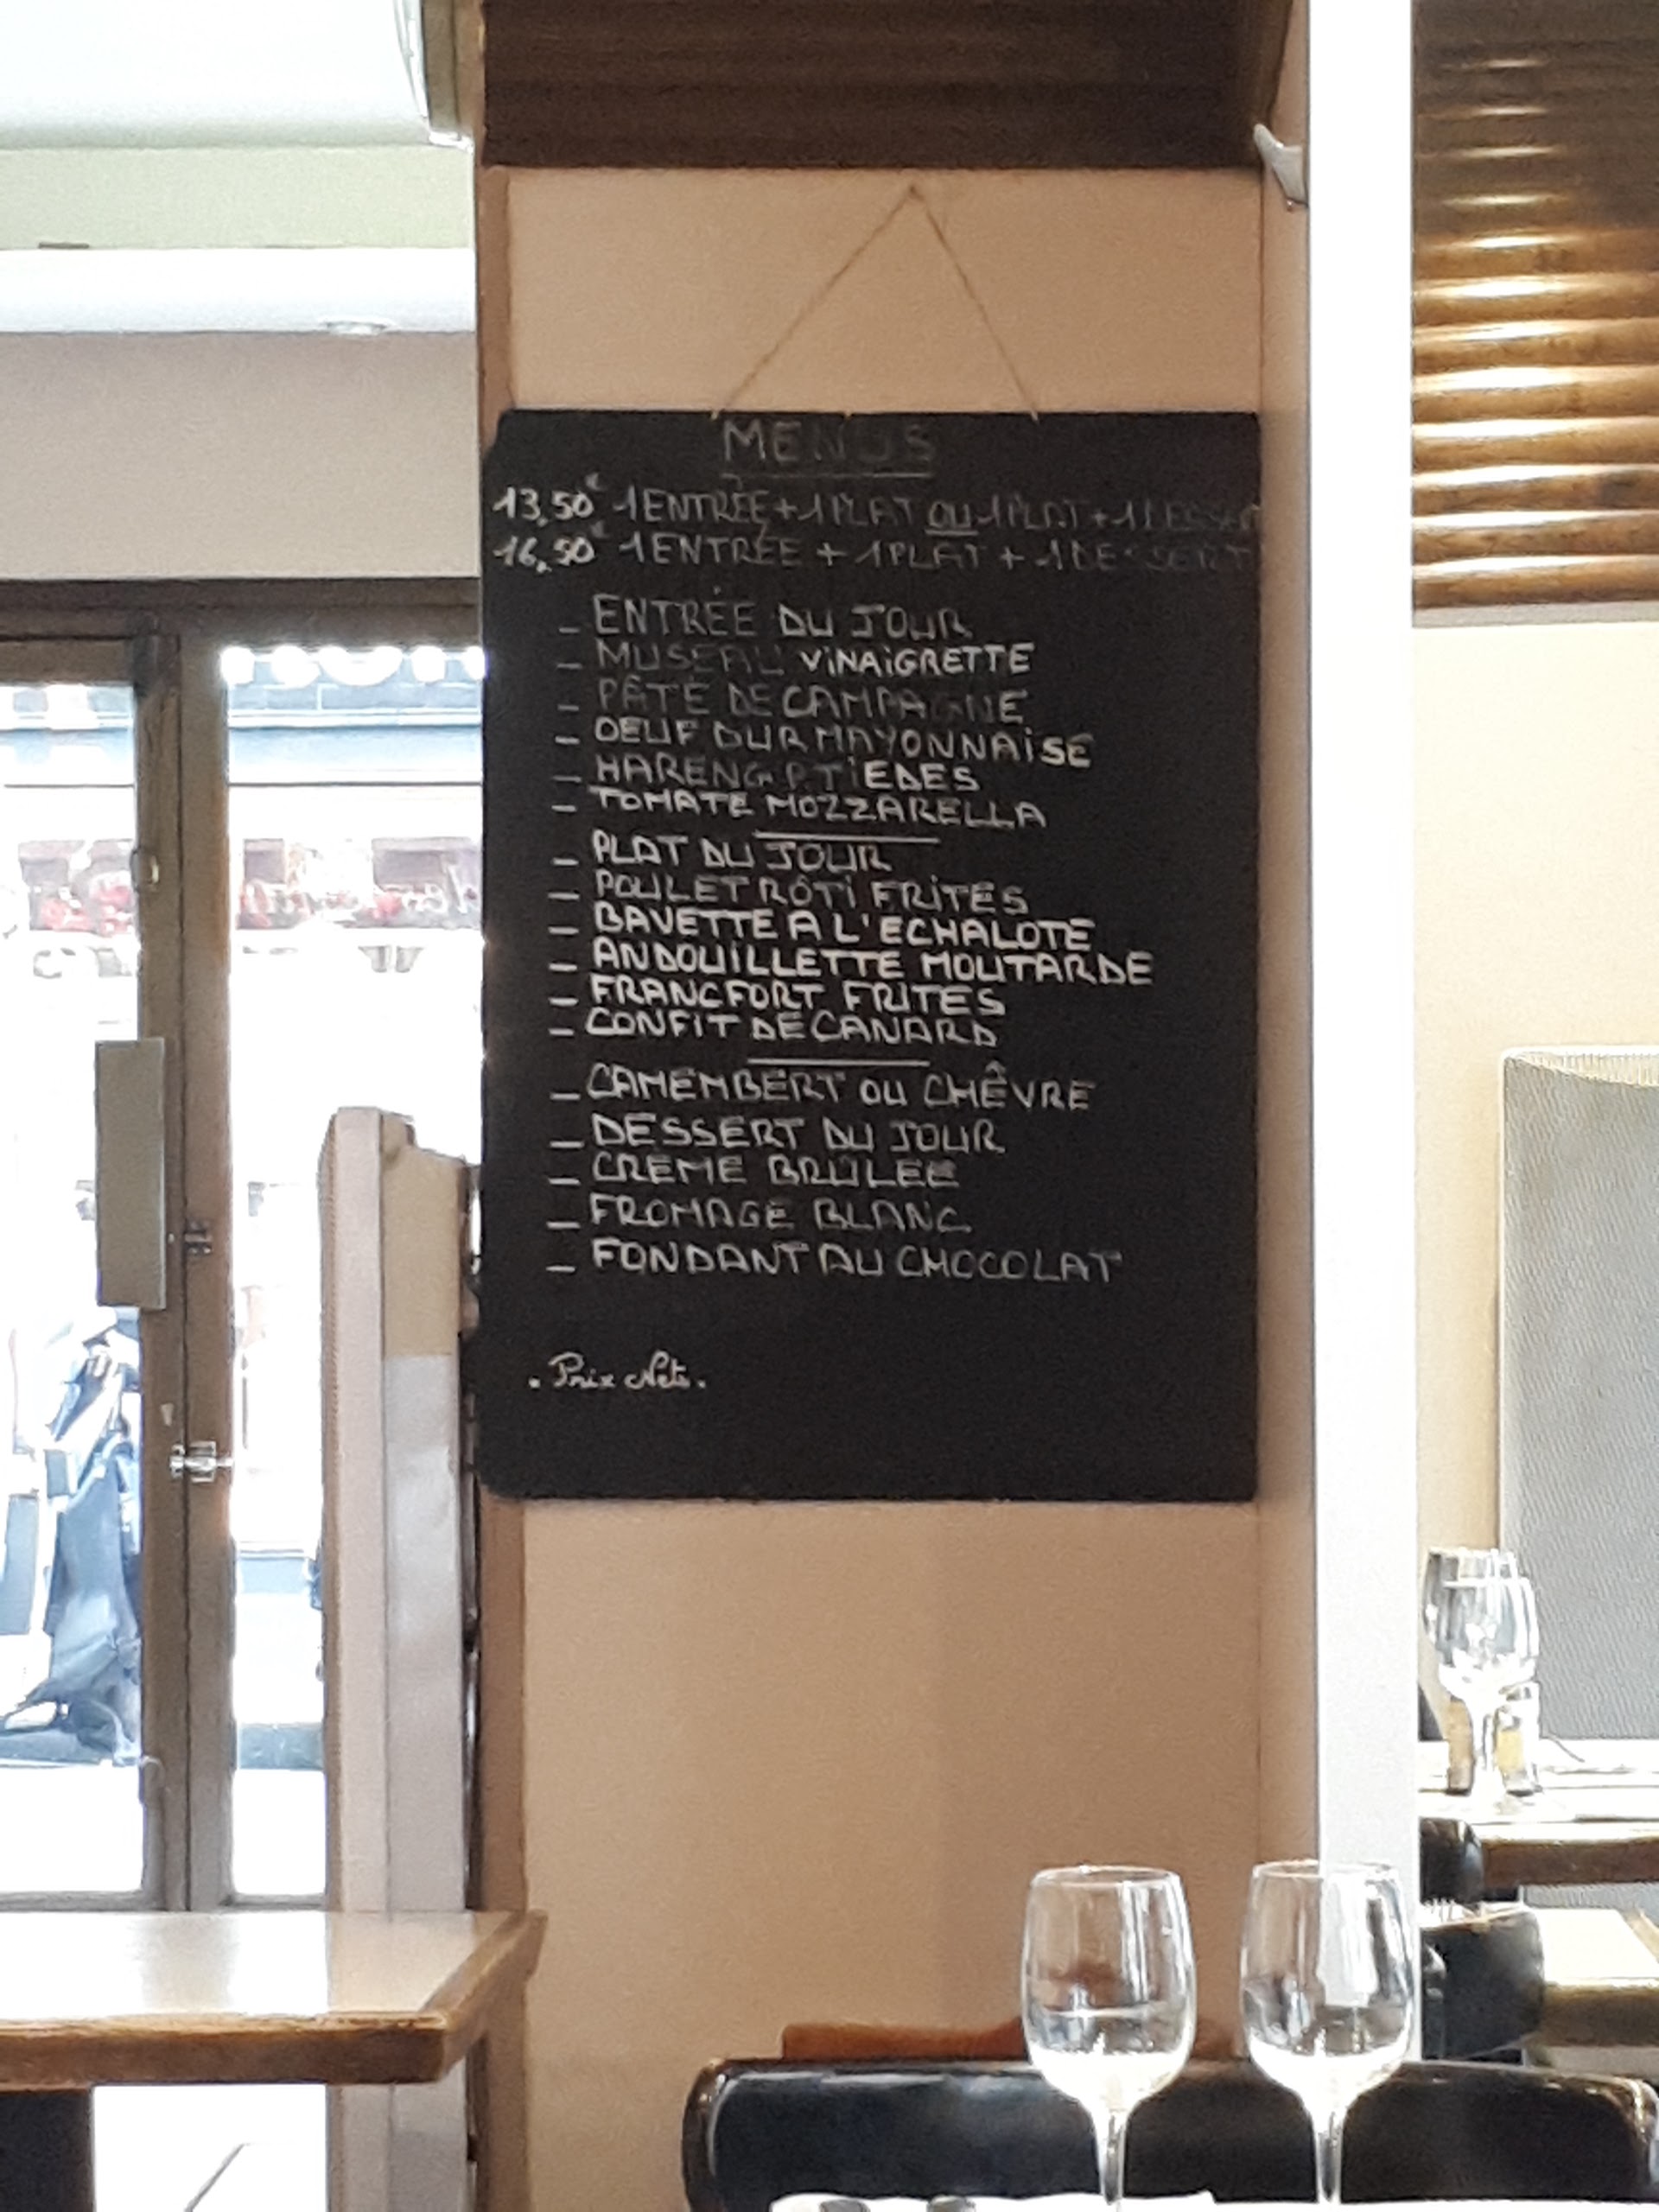 MENUS
13,50€ 1 ENTRÉE + 1 PLAT OU 1 PLAT + 1 DESSERT
16,50€ 1 ENTRÉE + 1 PLAT + 1 DESSERT
_ ENTRÉE DU JOUR
_ MUSEAU ViNAiGRETTE
_ PÂTÉ DE CAMPAGNE
_ OEUF DUR MAYONNAiSE
_ HARENG P. TiEDES
_ TOMATE MOZZARELLA
_ PLAT DU JOUR
_ POULET RÔTi FRiTES
_ BAVETTE A L'ECHALOTE
_ ANDOUiLLETTE MOUTARDE
_ FRANCFORT FRITES
_ CONFIT DE CANARD
_ CAMEMBERT OU CHÊVRE
_ DESSERT DU JOUR
_ CREME BRULEE
_ FROMAGE BLANC
_ FONDANT AU CHOCOLAT
. Prix Nets .